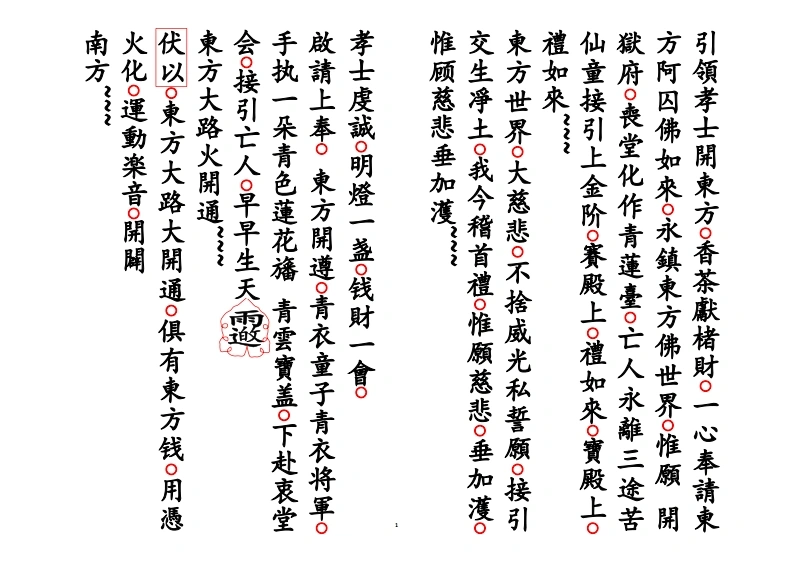 引領孝士開東方○香茶獻楮財○一心奉請東
方阿囚佛如來○永鎮東方佛世界○惟願 開
獄府○喪堂化作青蓮臺○亡人永離三途苦
仙童接引上金阶○賽殿上○禮如來○寶殿上○
禮如來~~~
東方世界○大慈悲○不捨威光私誓願○接引
交生淨土○我今稽首禮○惟願慈悲○垂加濩○
惟顾慈悲垂加濩~~~
孝士虔誠○明燈一盏○钱財一會○
啟請上奉○ 東方開遵○青衣童子青衣将軍○
手执一朵青色蓮花旛 青雲寶盖○下赴衷堂
会○接引亡人○早早生天
東方大路火開通~~~
伏以○東方大路大開通○俱有東方钱○用憑
火化○運動楽音○開闢
南方~~~
1